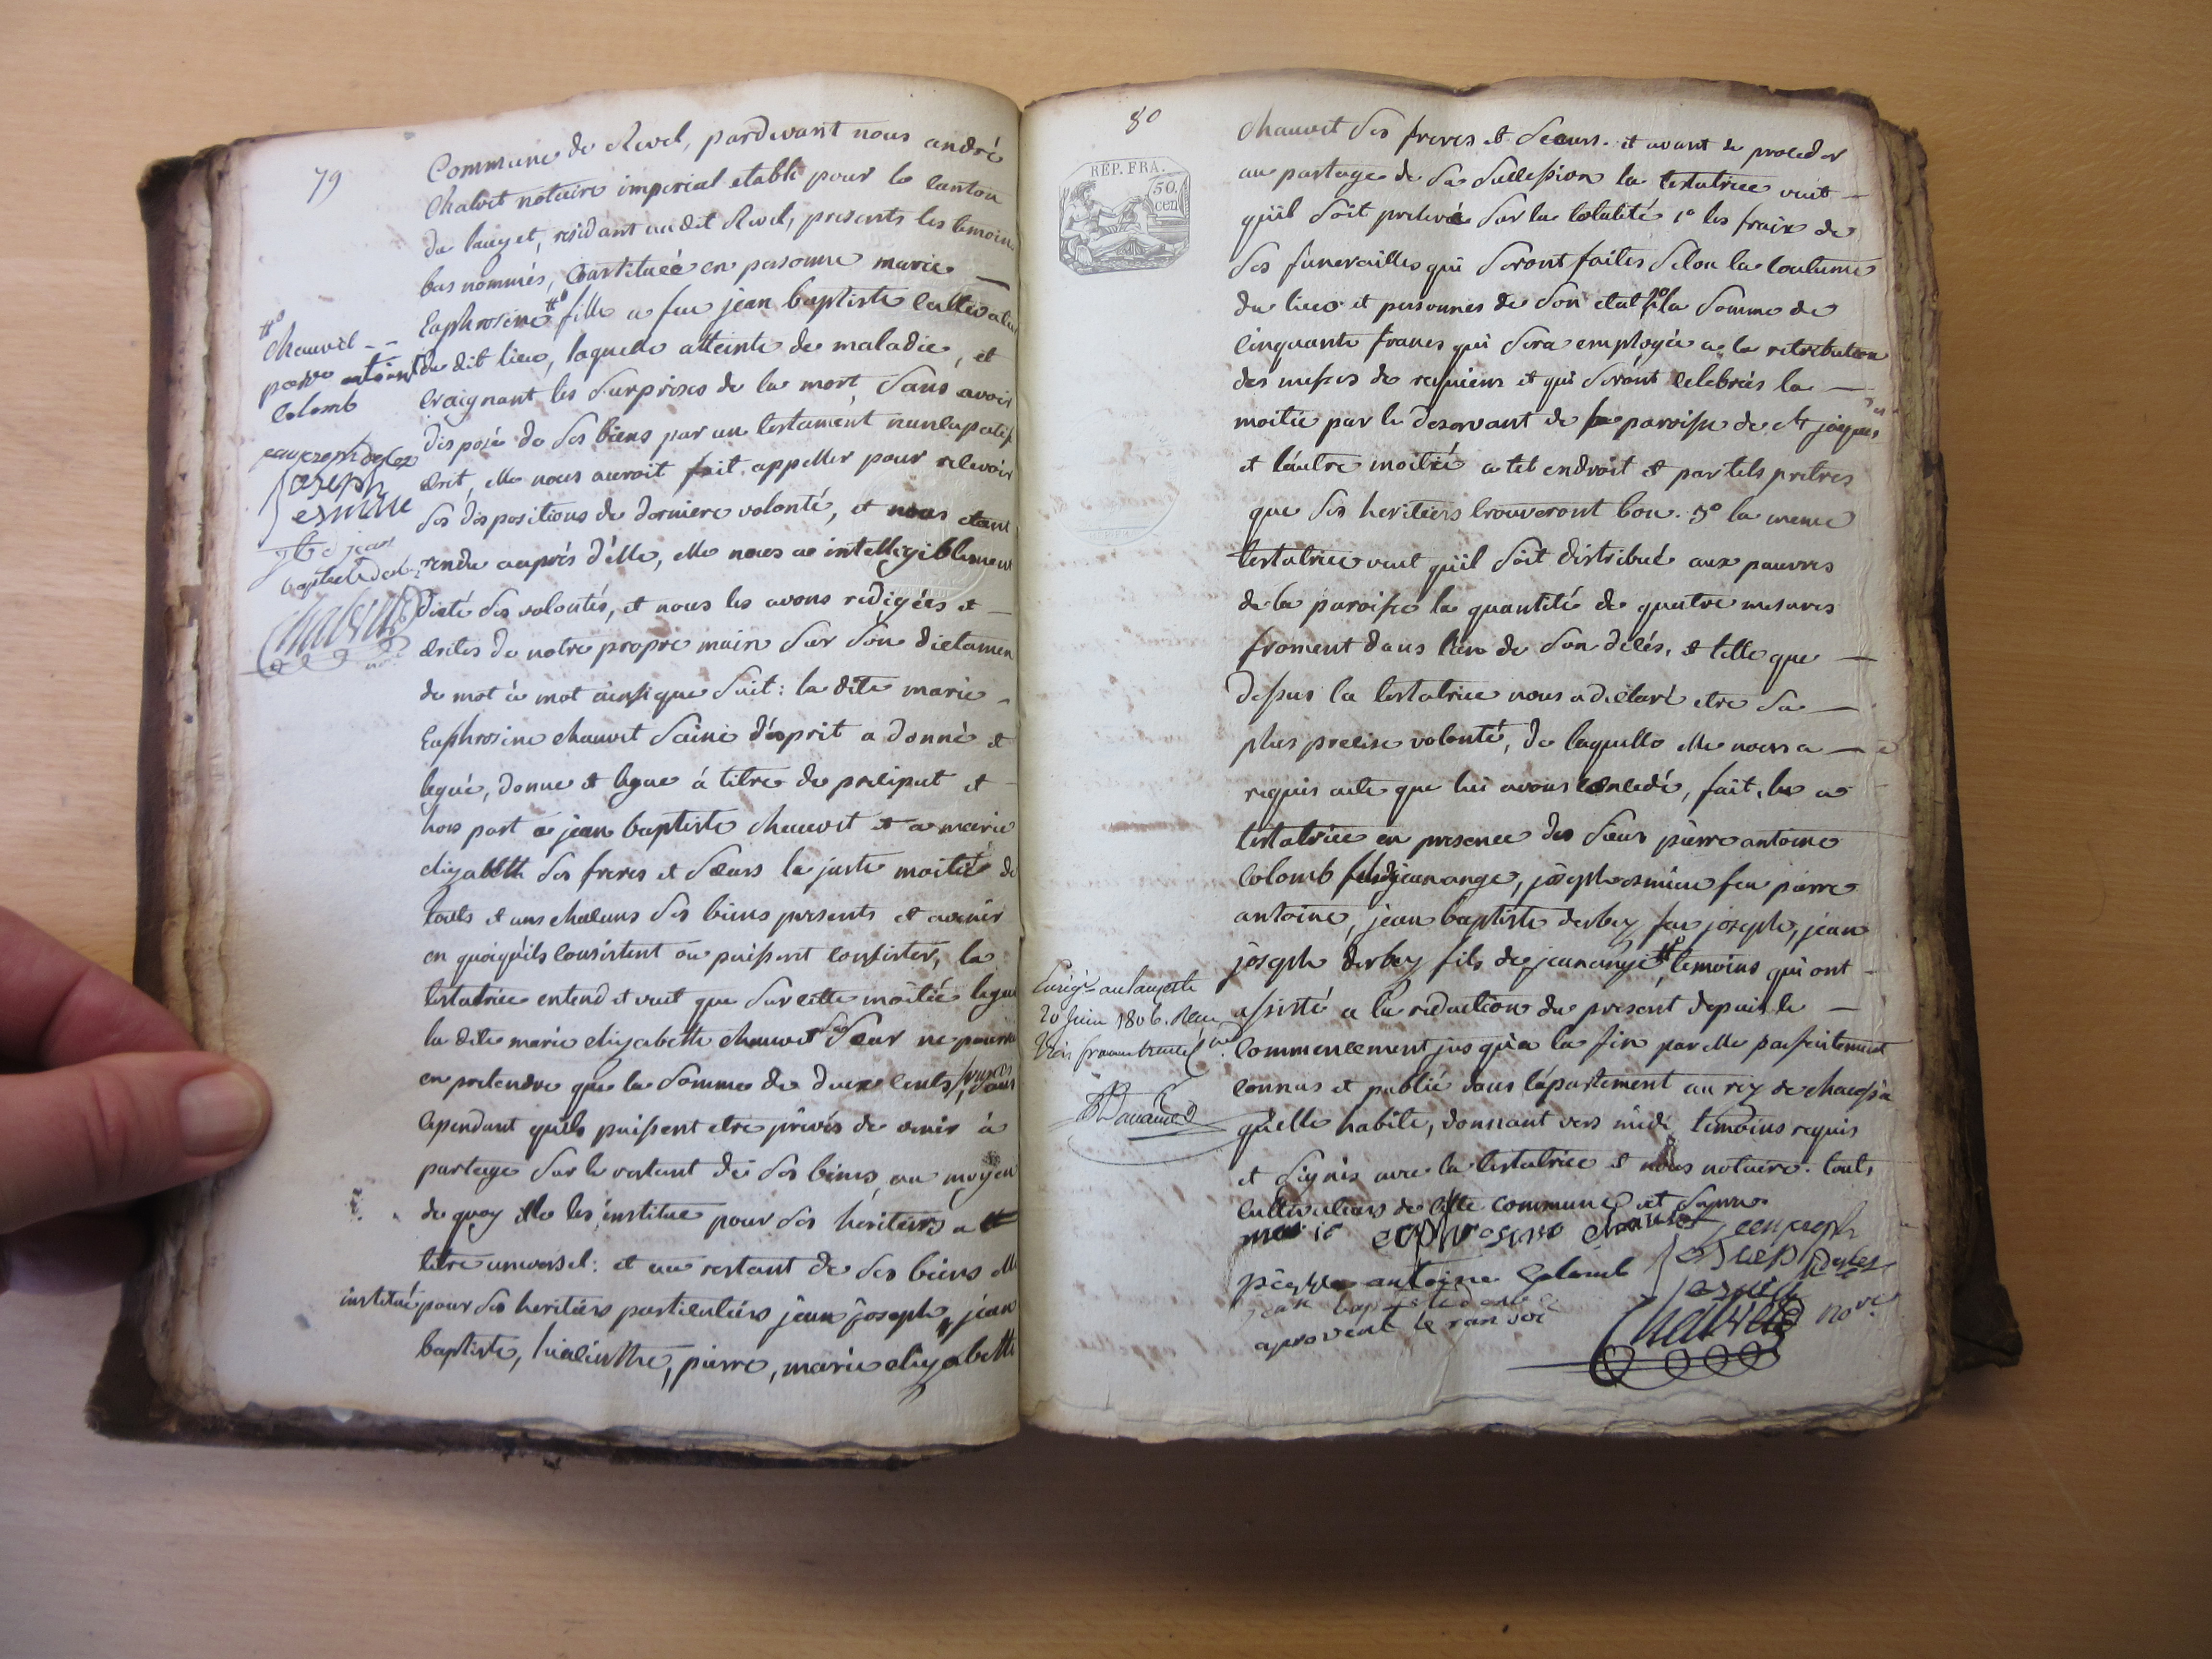 79
Commune de Revel, pardevant nous andré
Chalvet notaire imperial etabli pour le canton
du lauzet, residant au dit Revel, presents les temoins
bas nommés, Constituée en personne marie
Euphrosine # fille a feu jean baptiste cultivateur
du dit lieu, laquelle atteinte de maladie, et
craignant les surprises de la mort, sans avoir
disposé de ses biens par un testament nuncupatif
ecrit, elle nous auroit fait appeller pour recevoir
ses dispositions de derniere volonté, et nous etant
rendu auprés d'elle, elle nous a intelligiblement
dicté ses volontés, et nous les avons redigées et
ecrites de notre propre main sur son dictamen
de mot à mot ainsi que suit: la dite marie
Euphrosine chauvet saine d'esprit a donné et
legué, donne et legue á titre de preciput et
hors part a jean baptiste chauvet et a marie
elizabeth ses freres et sœurs la juste moitié de
touts et uns chacuns ses biens presents et avenir
en quoiqu'ils consistent ou puissent consister, la
testatrice entend et veut que sur cette moitié legue
la dite marie elizabethe chauvet sa sœur ne pourra
en pretendre que la somme de deux cents francs, sans
cependant qu'ils puissent etre privés de venir à
partage sur le restant de ses biens, au moyen
de quoy elle les institue pour ses heritiers a
titre universel: et au restant de ses biens elle
institué pour ses heritiers particuliers jean joseph, jean
baptiste, hiacinthe, pierre, marie elizabeth
#
chauvet
pierre antoine
colomb
jean joseph derbez
joseph
esmieu
jean
baptiste derbez
Chalvet
nore
80
REP. FRA.
50.
cen
chauvet ses freres et sœurs. et avant de proceder
au partage de sa succession la testatrice veut
qu'il soit prelevé sur la totalité 1° les fraix de
ses funerailles qui seront faites selon la coutume
du lieu et personnes de son etat, 2° la somme de
cinquante francs qui sera employée a la retribution
des messes de requiem et qui seront celebrées la
moitié par le deservant de la paroisse de st jacques
et l'autre moitié a tel endroit et par tels pretres
que ses heritiers trouveront bon. 3° la meme
testatrice veut qu'il soit distribué aux pauvres
de la paroisse la quantité de quatre mesures
froment dans l'an de son décés, et telle que
dessus la testatrice nous a déclaré etre sa
plus precise volonté, de laquelle elle nous a
requis acte que lui avons concedé, fait, lu a
testatrice en presence des sieurs pierre antoine
colomb jean ange, joseph esmieu feu pierre
antoine, jean baptiste derbez feu joseph, jean
joseph derbez fils de jean ange # temoins qui ont
assisté a la redaction du present depuis le
commencement jusqu'a la fin par elle parfaitement
connus et publié dans l'apartement au rez de chaussée
qu'elle habite, donnant vers midi, temoins requis
et signés avec la testatrice et nous notaire. touts
cultivateurs de cette commune et signés
marie euphrosine chauvet jean joseph
derbez
pierre antoine Colomb joseph
esmieu
jean baptiste derbez
aprouvent le ranvoi
Chalvet nore.
Enregé au lauzet le
20 juin 1806. Reçu
trois francs trente cmes.